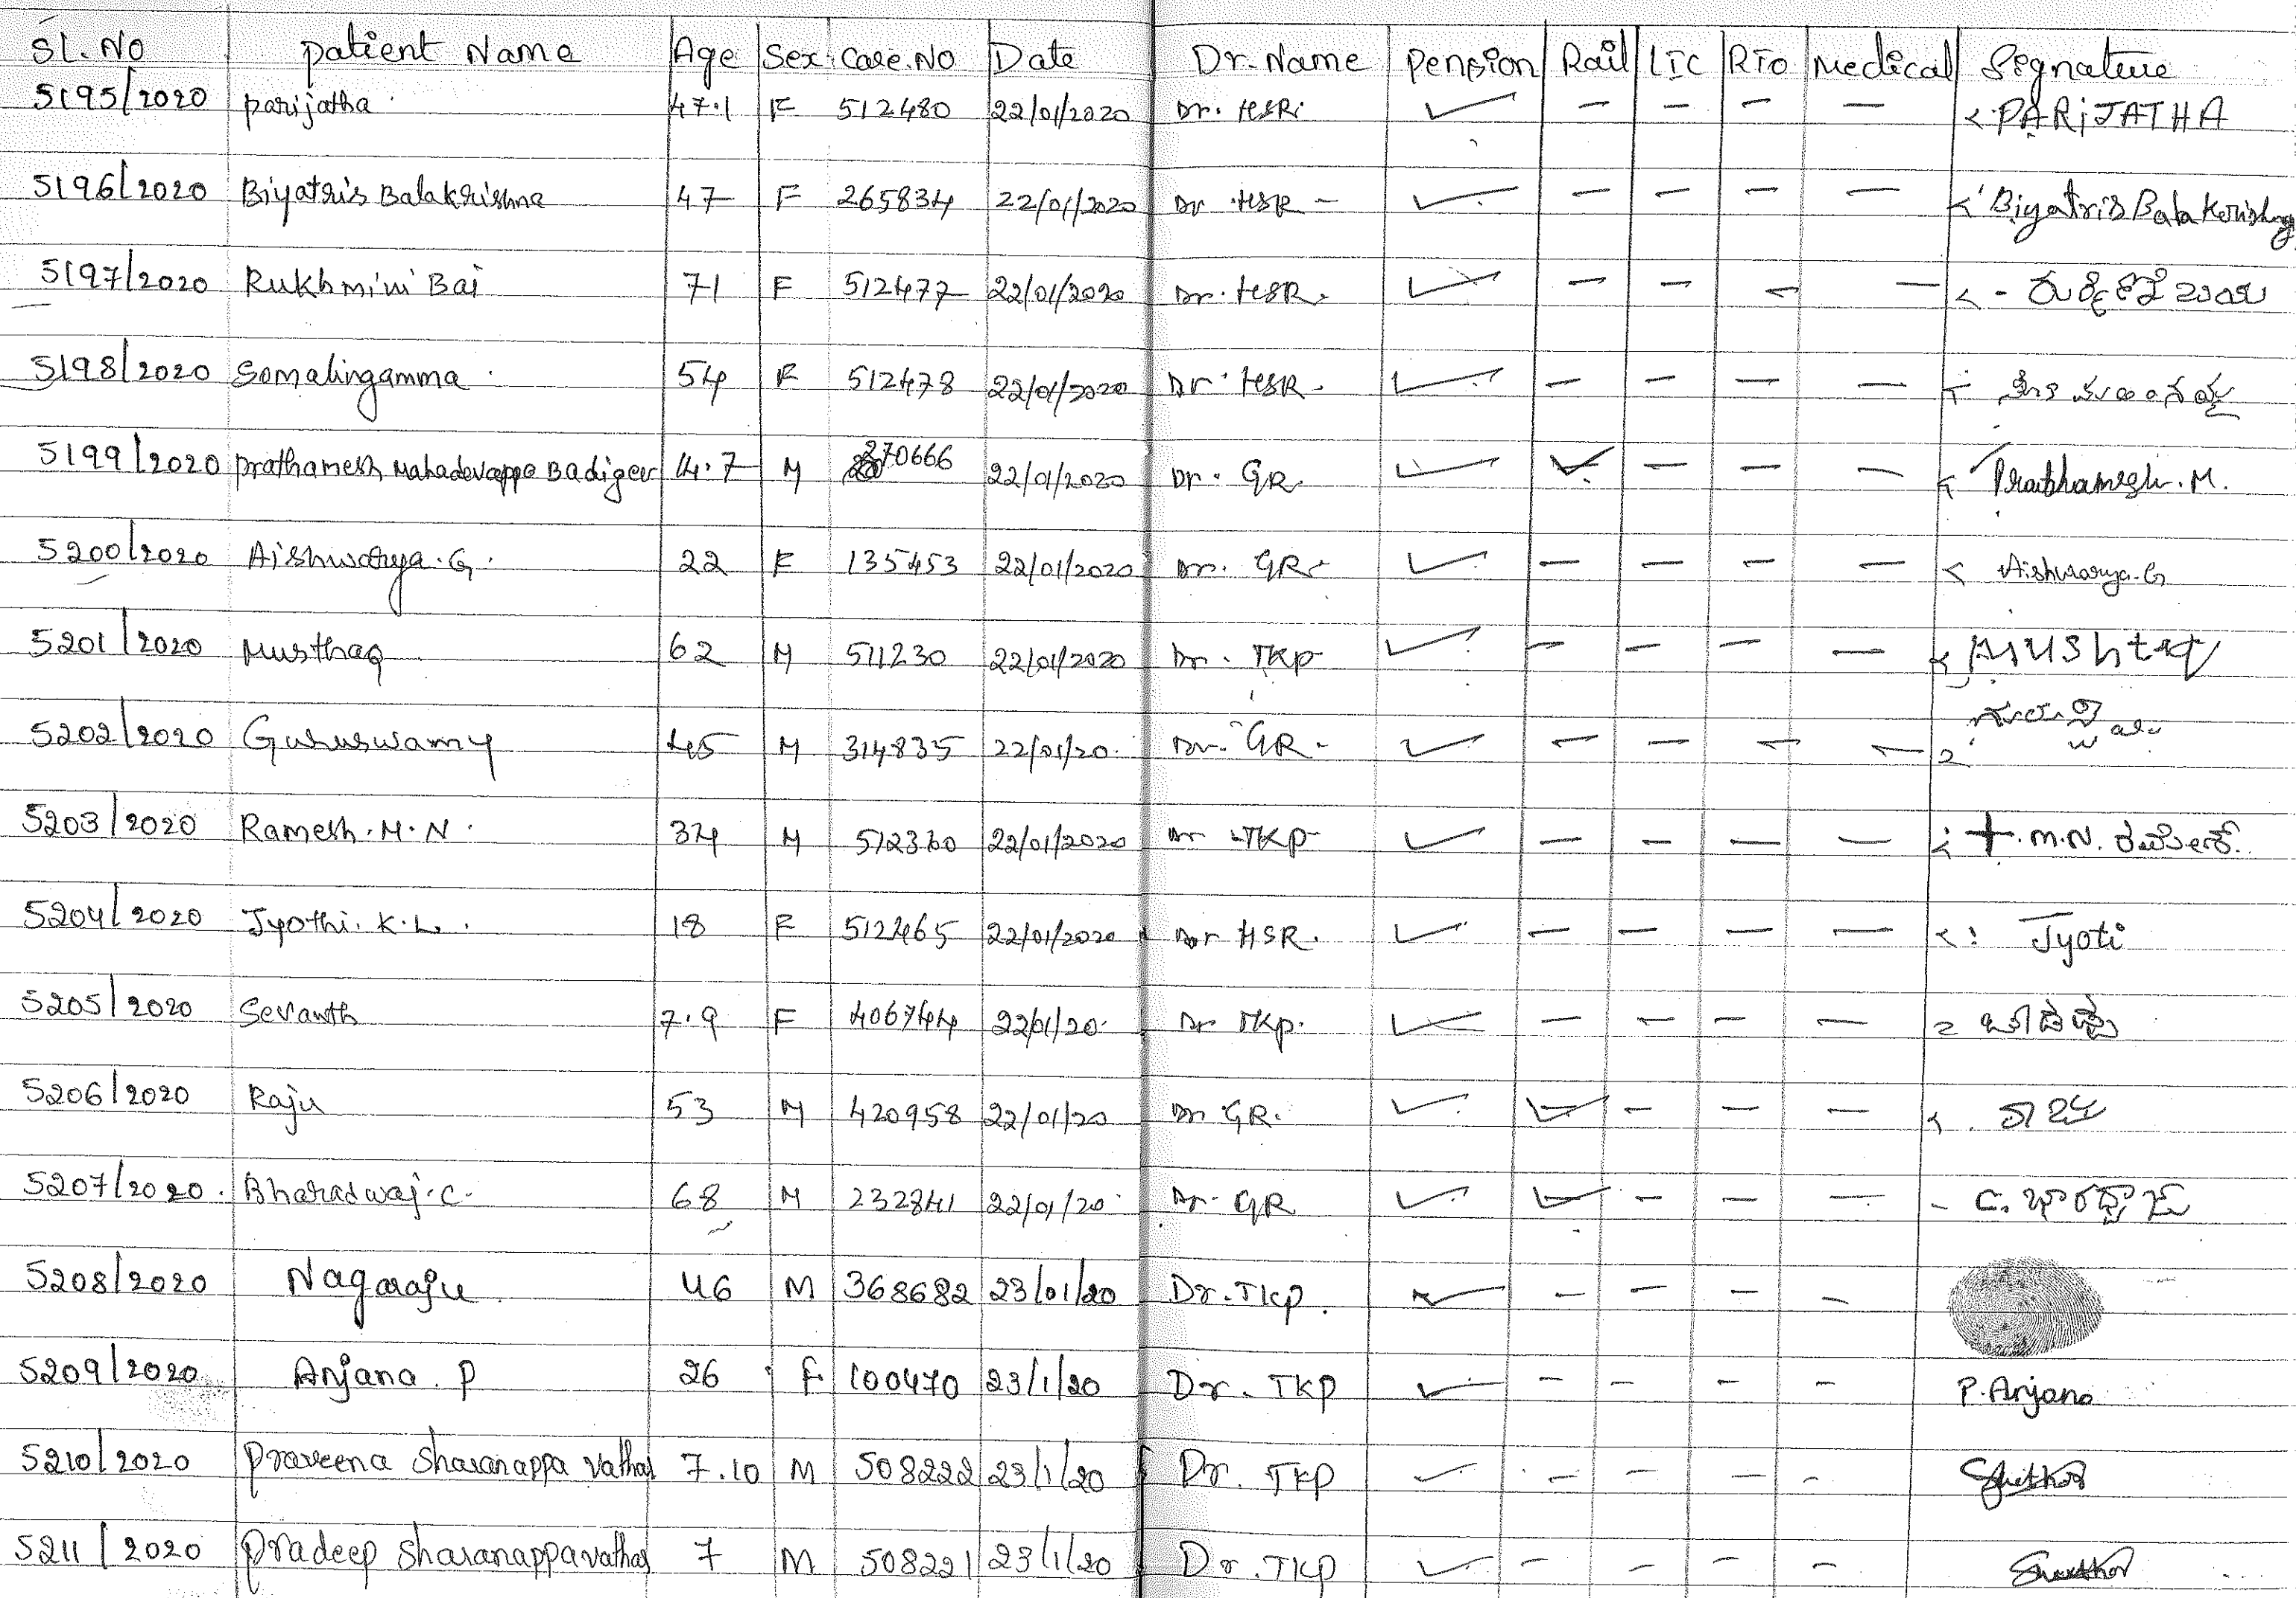 Sl.No Patient Name Age Sex Case.No Date Dr.Name Pension Rail LIC RTO Medical Signature
5195/2020 parijatha 47.1 F 512480 22/01/2020 Dr. HSR ✓ — — — — PARIJATHA
5196/2020 Biyatris Balakrishna 47 F 265834 22/01/2020 Dr. HSR ✓ — — — — Biyatris Balakrishna
5197/2020 Rukhmini Bai 71 F 512477 22/01/2020 Dr. HSR. ✓ — — — —
5198/2020 Somalingamma 54 F 512478 22/01/2020 Dr. HSR. ✓ — — — —
5199/2020 Prathamesh Mahadevappa Badiger 14.7 M 270666 22/01/2020 Dr. GR. ✓ ✓ — — — Prathamesh.M.
5200/2020 Aishwarya.G. 22 F 135453 22/01/2020 Dr. GR ✓ — — — — Aishwarya.G
5201/2020 Musthaq 62 M 511230 22/01/2020 Dr. TKP ✓ — — — — Mushtaq
5202/2020 Guruswamy 45 M 314835 22/01/20 Dr. GR. ✓ — — — —
5203/2020 Ramesh.M.N. 34 M 512360 22/01/2020 Dr TKP ✓ — — — — M.N. ರಮೇಶ್.
5204/2020 Jyothi.K.L. 18 F 512465 22/01/2020 Dr HSR. ✓ — — — — Jyoti
5205/2020 Sevanth 7.9 F 406744 22/01/20 Dr TKP. ✓ — — — —
5206/2020 Raju 53 M 420958 22/01/20 Dr GR. ✓ ✓ — — — ರಾಜು
5207/2020. Bharadwaj.C. 68 M 232841 22/01/20 Dr. GR ✓ ✓ — — — C. ಭಾರದ್ವಾಜ್
5208/2020 Nagaraju 46 M 368682 23/01/20 Dr. TKP. ✓ — — — —
5209/2020 Anjana.P 26 F 100470 23/1/20 Dr. TKP ✓ — — — — P. Anjana
5210/2020 Praveena Sharanappa Vathar 7.10 M 508222 23/1/20 Dr. TKP ✓ — — — —
5211/2020 Pradeep Sharanappa vathar 7 M 508221 23/1/20 Dr. TKP ✓ — — — —